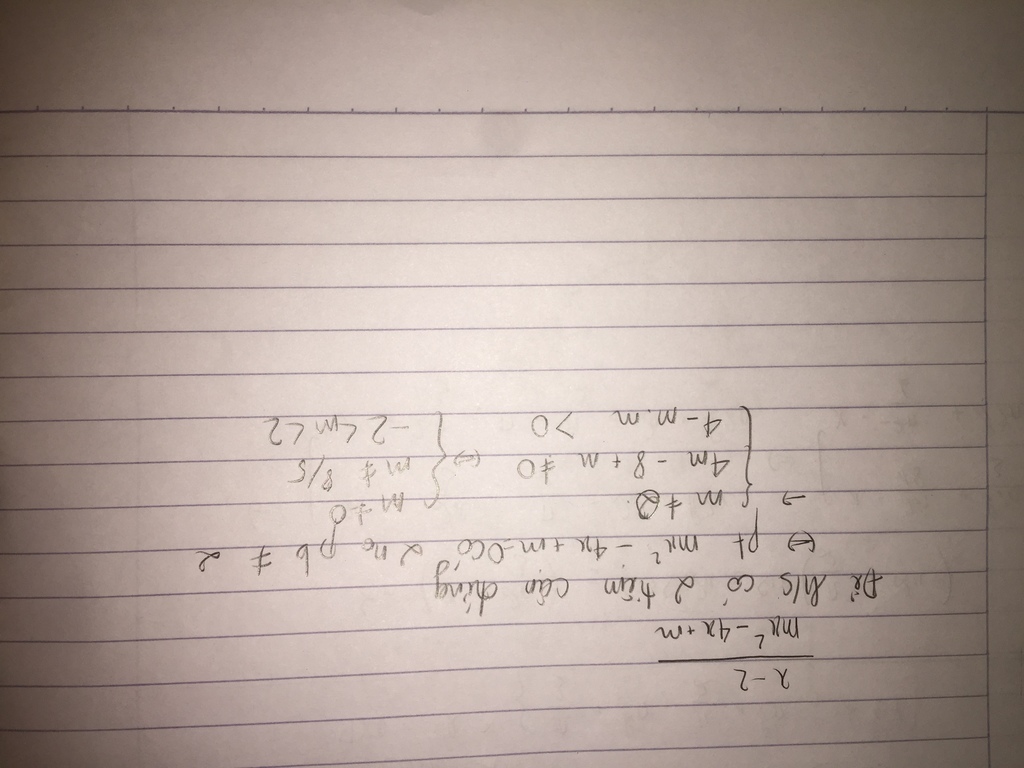 x-2
mx² - 4x + m
Để h/s có 2 tiệm cận đứng
⇔ pt mx² - 4x + m = 0 có 2 no pb ≠ 2
→ { m ≠ 0 { m ≠ 0
4m - 8 + m ≠ 0 ⇔ m ≠ 8/5
4 - m.m > 0 -2 < m < 2